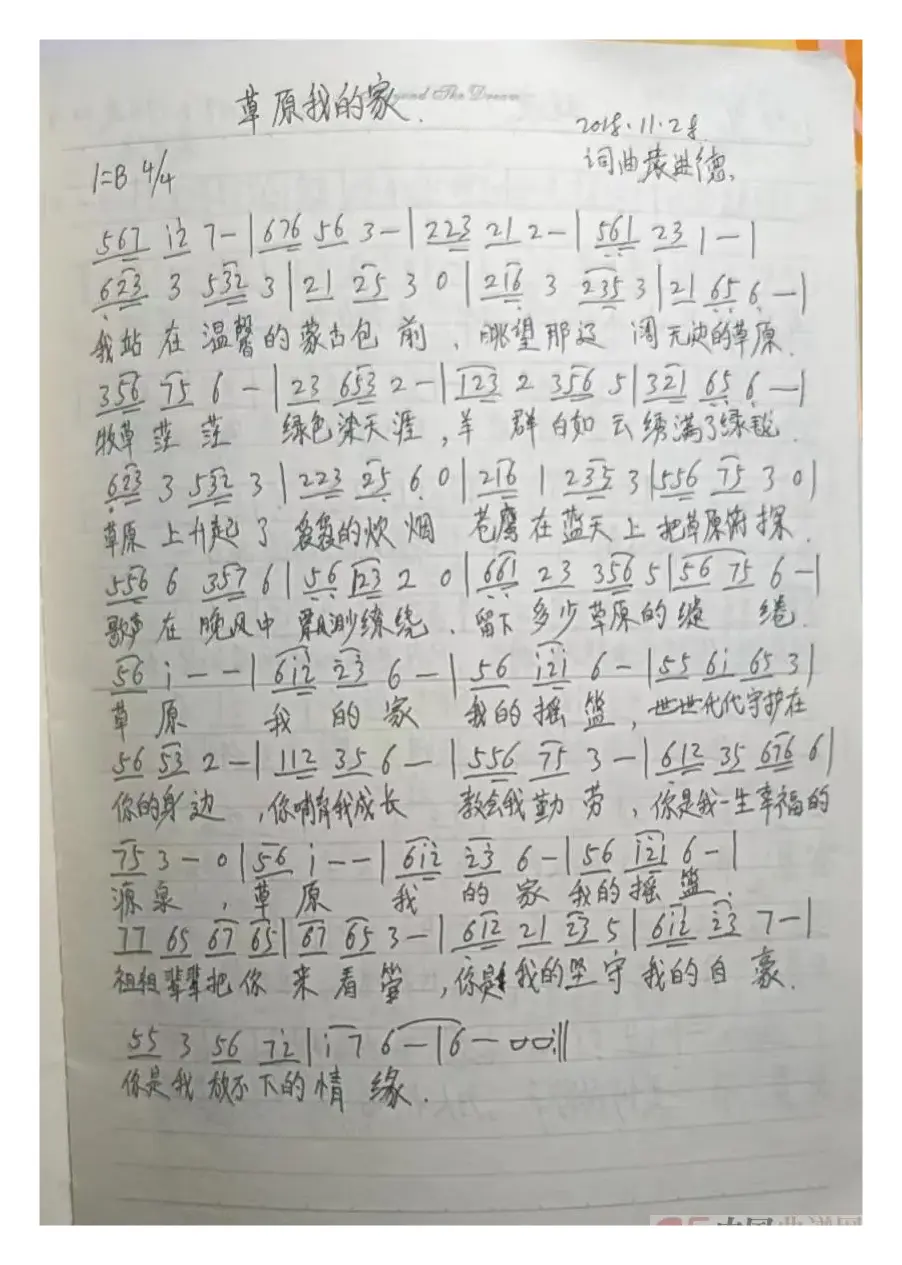 草原我的家.
Beyond The Dream
2018.11.28
词曲袁典德.
1=B 4/4
567 i2 7-|676 56 3-|223 21 2-|561 23 1-|
623 3 532 3|21 25 3 0|216 3 235 3|21 65 6-|
我站在温馨的蒙古包前、眺望那辽阔无边的草原.
356 75 6-|23 653 2-|123 2 356 5|321 65 6-|
牧草茫茫 绿色染天涯,羊群白如云绣满了绿毯.
623 3 532 3|223 25 6 0|216 1 235 3|556 75 3 0|
草原上升起了袅袅的炊烟 苍鹰在蓝天上把草原俯探.
556 6 357 6|56 123 2 0|661 23 356 5|56 75 6-|
歌声在晚风中飘渺缭绕、留下多少草原的缱绻.
56 i--|6i2 23 6-|56 i2i 6-|55 6i 65 3|
草原 我的家 我的摇篮,世世代代守护在
56 53 2-|112 35 6-|556 75 3-|612 35 676 6|
你的身边,你哺育我成长 教会我勤劳,你是我一生幸福的
75 3-0|56 i--|6i2 23 6-|56 i21 6-|
源泉,草原 我的家 我的摇篮.
77 65 67 65|67 65 3-|612 21 23 5|6i2 23 7-|
祖祖辈辈把你来看管,你是我的坚守我的自豪.
55 3 56 72|i7 6-|6-00:||
你是我放不下的情缘.